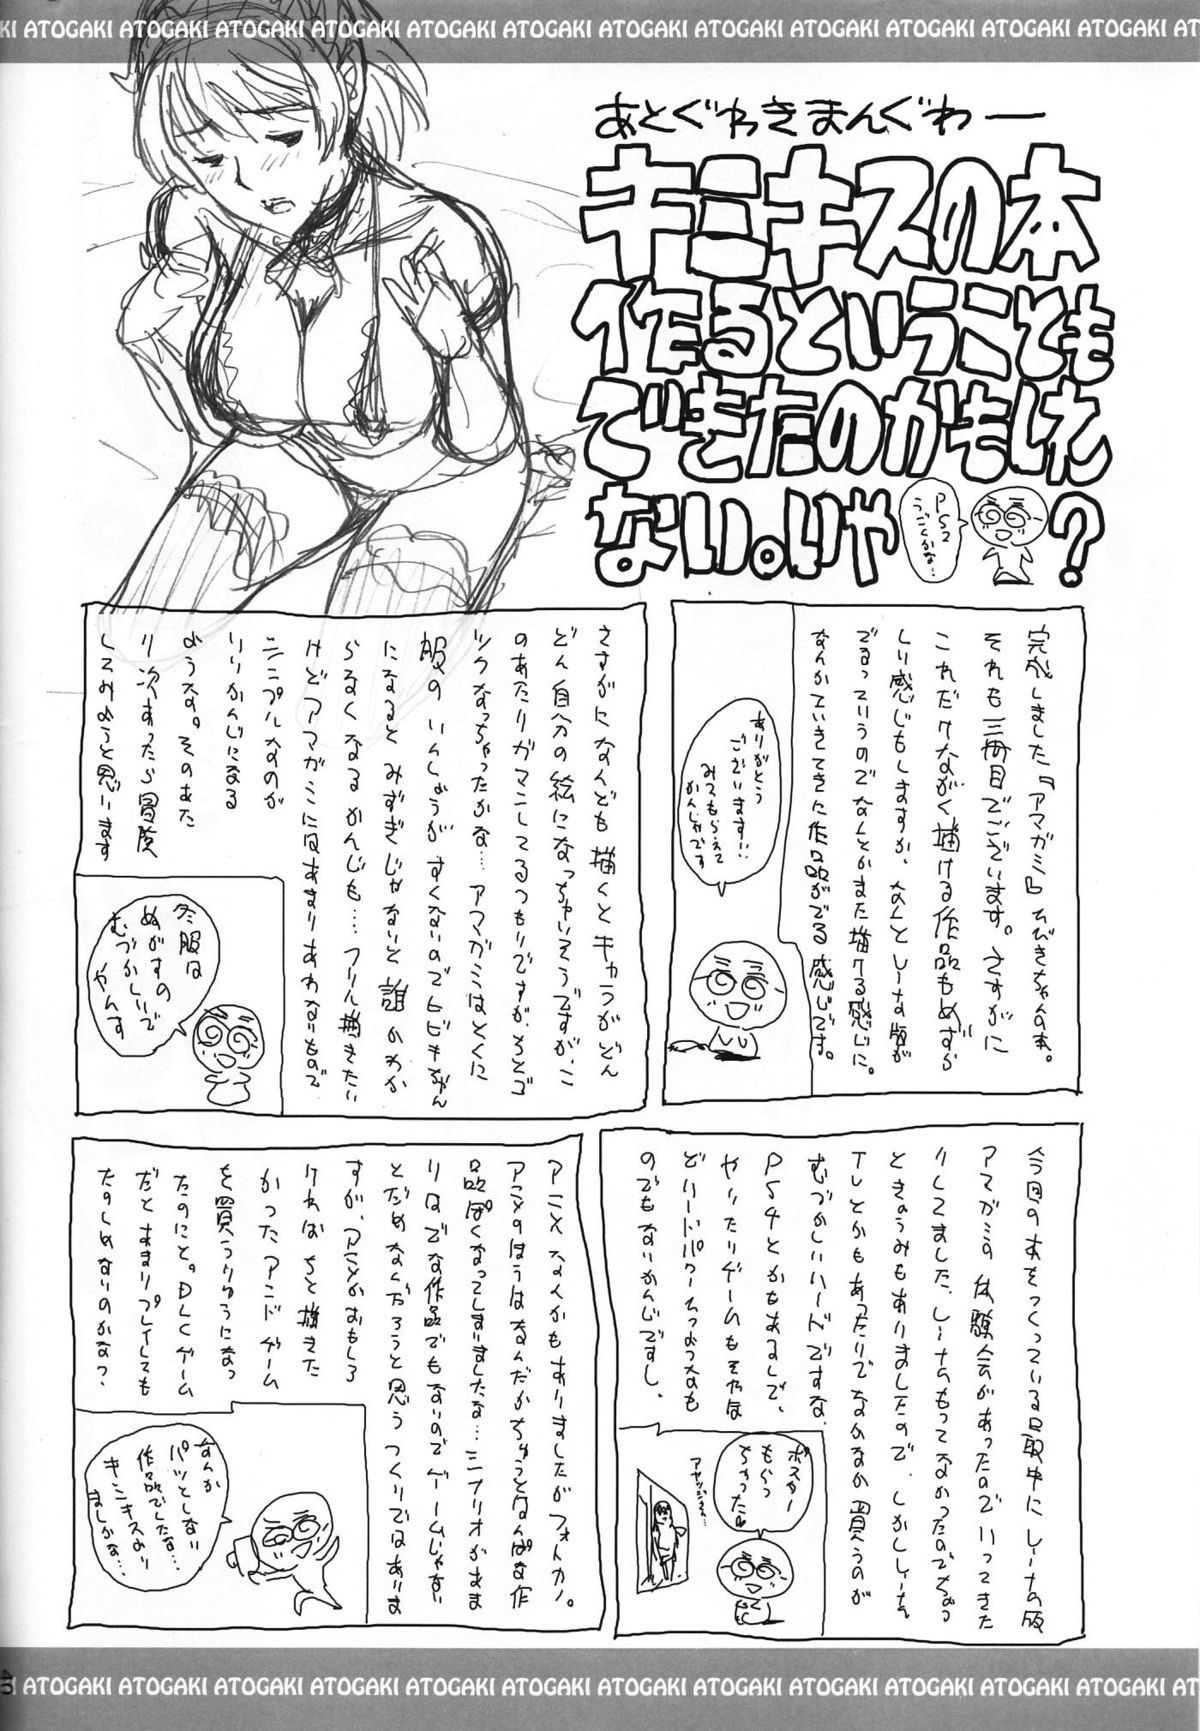 ATOGAKI ATOGAKI ATOGAKI ATOGAKI ATOGAKI ATOGAKI ATOGAKI ATOGAKI ATOGAKI ATOGAKI
あとぐわきまんぐわー
キミキスの本
作るということも
できたのかもしれ
ない。いや
?
PS2
うごくかな…
完成しました『アマガミ』ひびきちゃん本。
それも三冊目でございます。さすがに
これだけながく描ける作品もめずら
しい感じもしますが、なんとビータ版が
でるっていうのでなんとかまた描ける感じに。
なんかていきてきに作品がでる感じです。
ありがとう
ございます!!
みてもらえて
かんしゃです
さすがになんども描くとキャラがどん
どん自分の絵になっちゃいそうですが、こ
のあたりガマンしてるつもりですが、ちとゴ
ツクなっちゃったかな…アマガミはとくに
服のいんしょうがすくないのでヒビキちゃん
になるとみずぎじゃないと誰かわか
らなくなるかんじも…フリル描きたい
けどアマガミにはあまりあわないもので
シンプルなのが
いいかんじになる
ような。そのあた
り次あったら冒険
してみようと思います
冬服は
ぬがすの
むづかしいで
やんす
今回の本をつくっている最中にビータの版
アマガミの体験会があったのでいってきた
りしてました。ビータもってなかったのでちょっ
ときょうみもありましたので。しかしビータ
TVとかもあったりでなかなか買うのが
むづかしいハードですな。
PS4とかもあるしで、
やりたいゲームもそれほ
どハードパワーつかうもの
のでもないかんじですし。
ポスター
もらっ
ちゃった
アニメなんかもありましたがフォトカノ。
アニメのほうはなんだかちゅうとはんぱな作
品ぽくなってしまいましたな…シナリオがあま
りはでな作品でもないのでゲームじゃない
とだめなんだろうと思うつくりではありま
すが、アニメがおもしろ
ければちと描きた
かったアンドゲーム
を買うりゆうになっ
たのにと。DLCゲーム
だとあまりプレイしても
たのしめないのかな?
なんか
パッとしない
作品でしたな…
キミキスより
ましかな…
ATOGAKI ATOGAKI ATOGAKI ATOGAKI ATOGAKI ATOGAKI ATOGAKI ATOGAKI ATOGAKI ATOGAKI